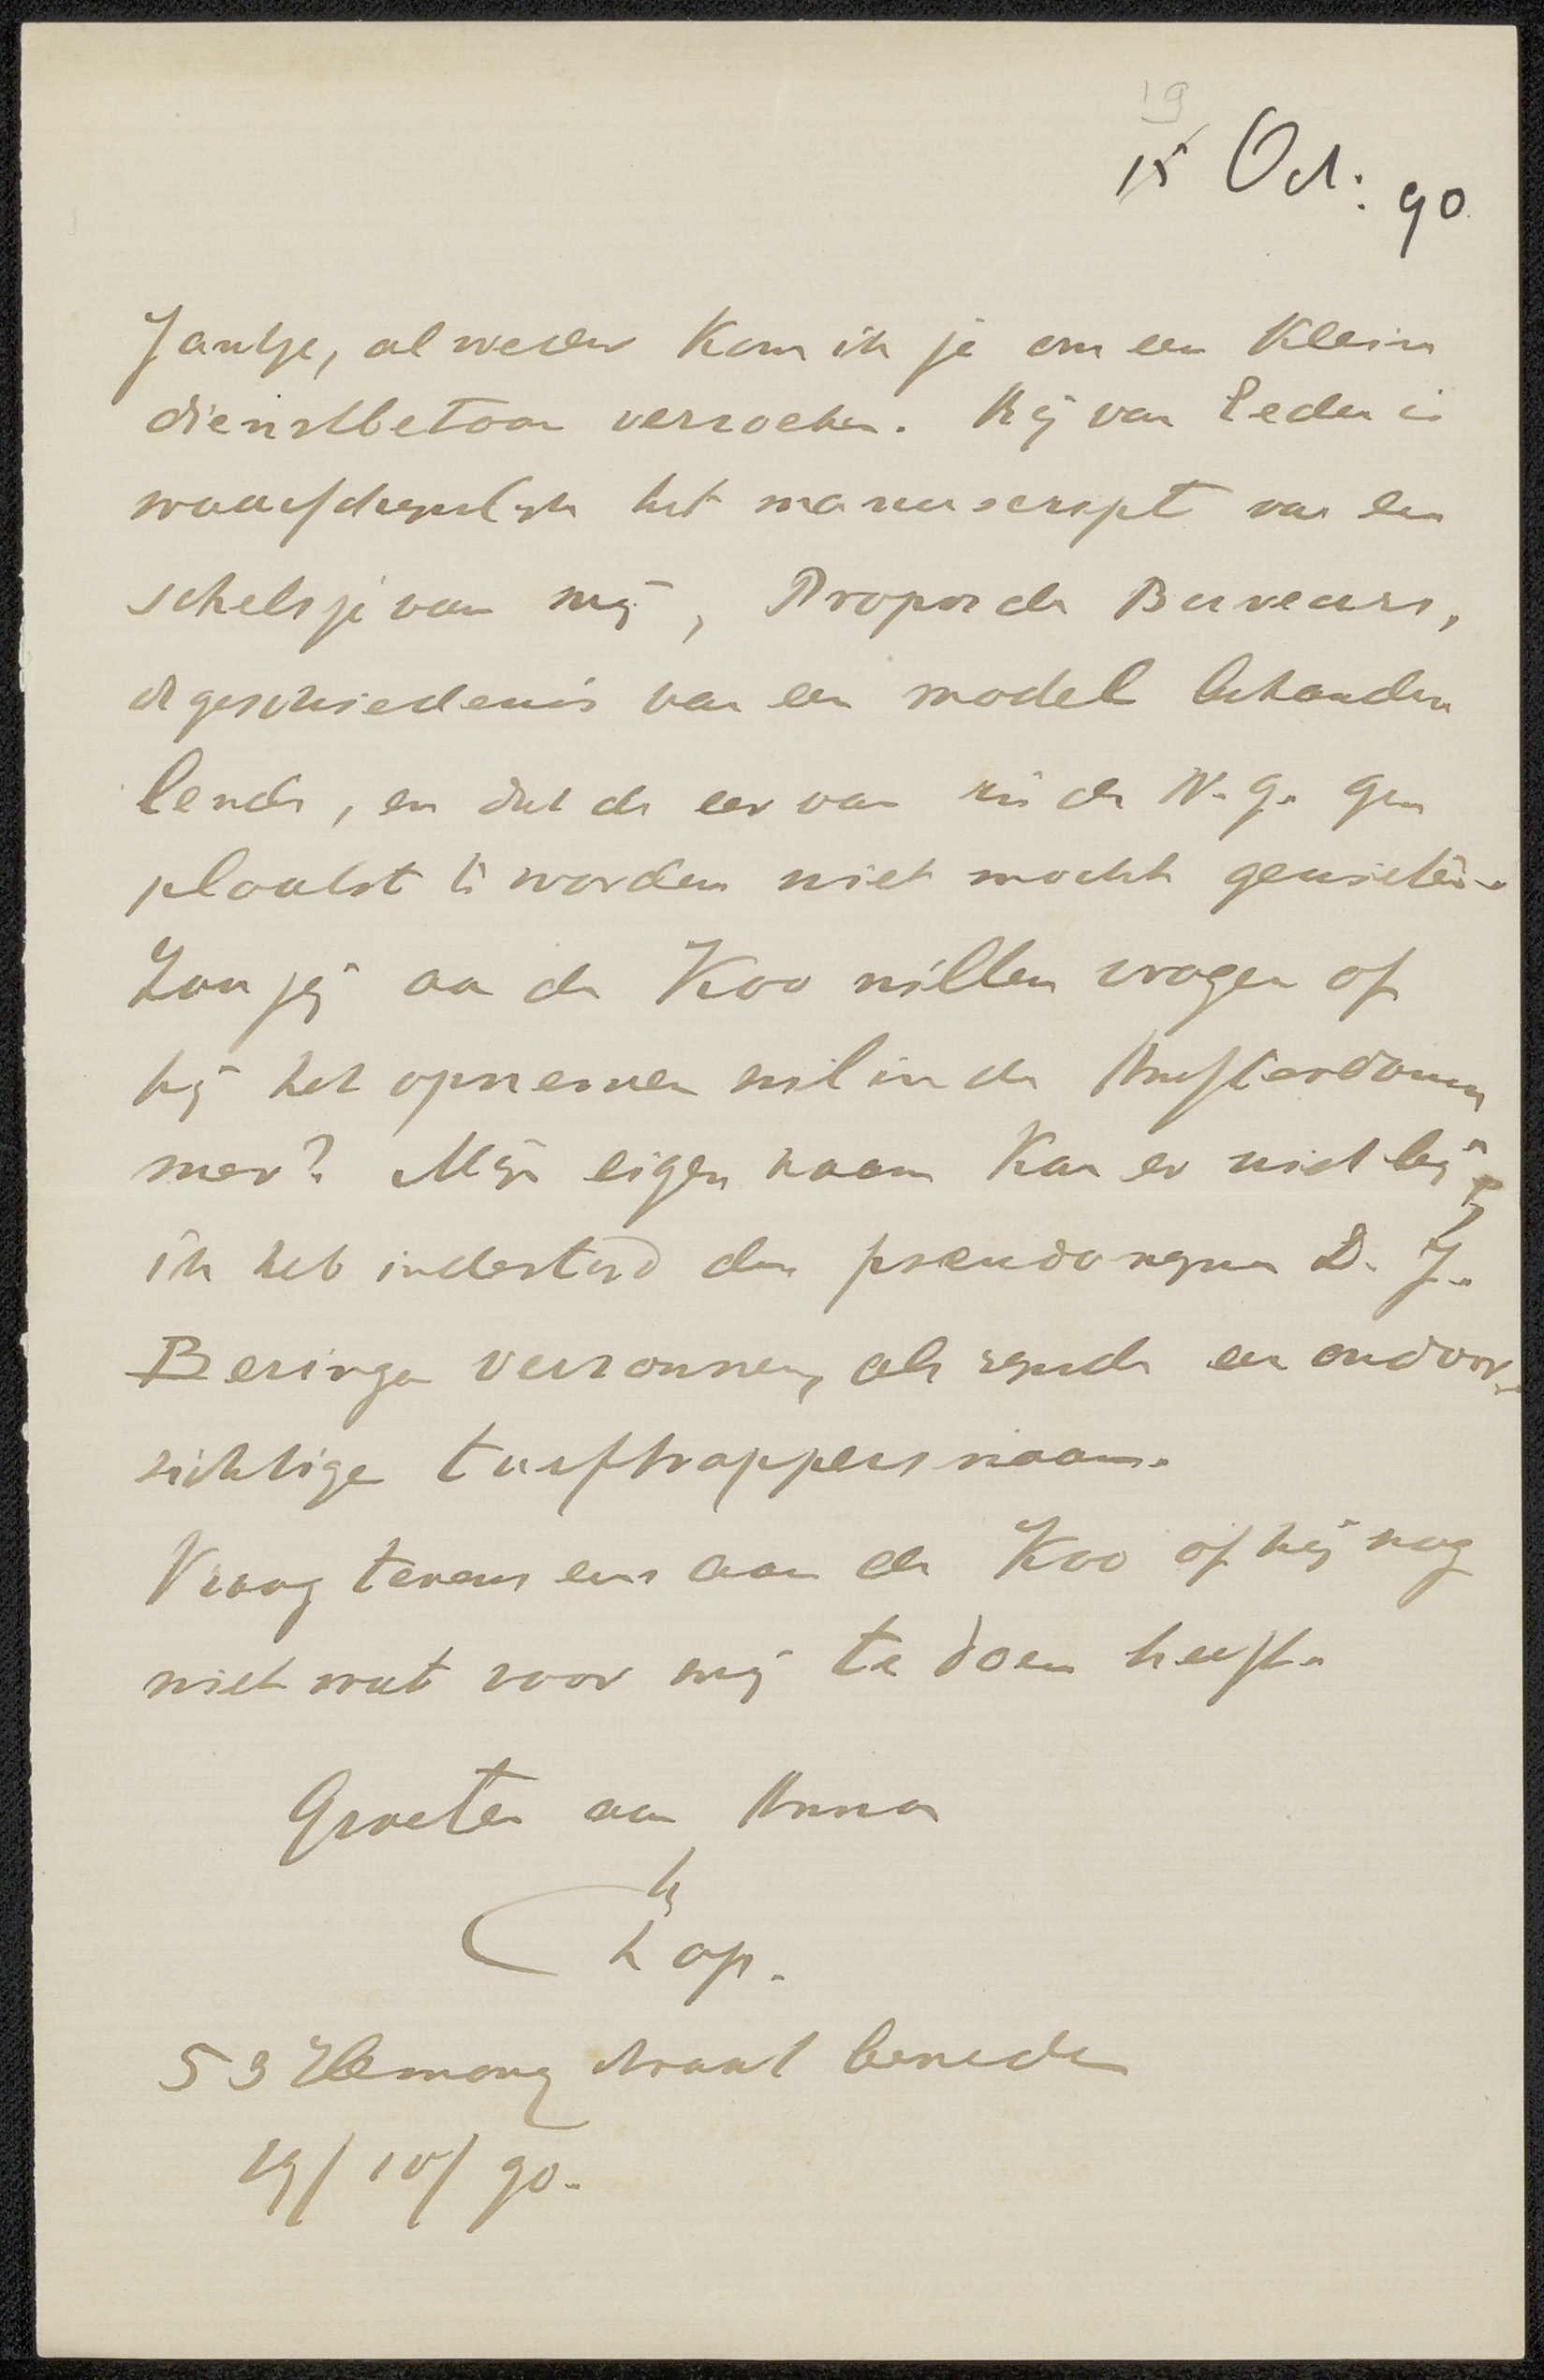 19
15 Oct: 90
Jantje, al weder kom ik je om een klein
dienstbetoon verzoeken. Bij van Eeden is
waarschijnlijk het manuscript van een
schetsje van mij, Propos de Buveurs,
de geschiedenis van een model behande
lende, en dat de eer van in de N. G. ge
plaatst te worden niet mocht genieten.
Zou jij aan de Koo willen vragen of
hij het opnemen wil in de Amsterdam
mer? Mijn eigen naam kan er niet bij
ik heb indertijd den pseudonym D. J.
Beringa verzonnen, als zijnde een ondoor
zichtige turftrappersnaam.
Vraag tevens eens aan de Koo of hij nog
niet wat voor mij te doen heeft.
Groeten aan Anna
Chap.
53 Hemony straat beneden
19/10/90.